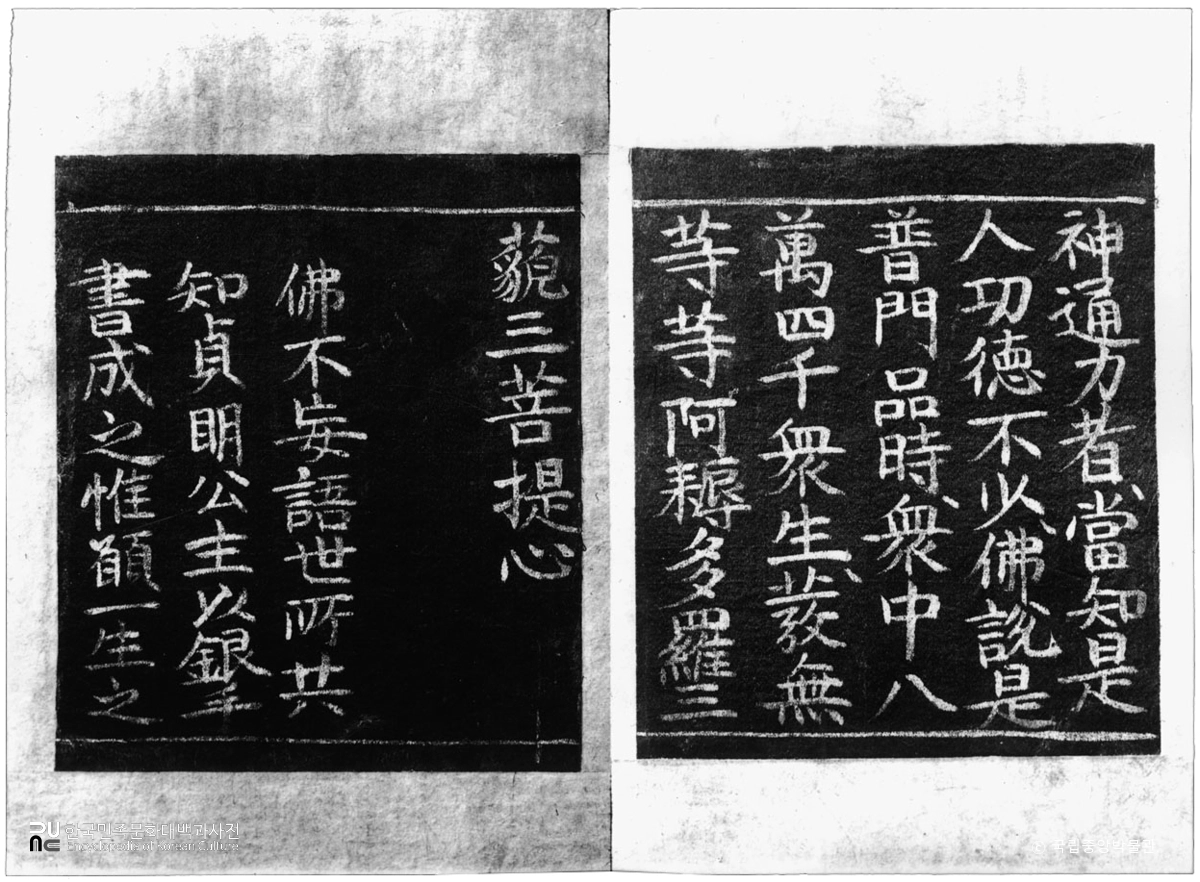 神通力者當知是
人功德不少佛說是
普門品時衆中八
萬四千衆生皆發無
等等阿耨多羅三
藐三菩提心
佛不妄語世所共
知貞明公主以銀字
書成之惟願一生之
한국민족문화대백과사전
Encyclopedia of Korean Culture
국립중앙박물관